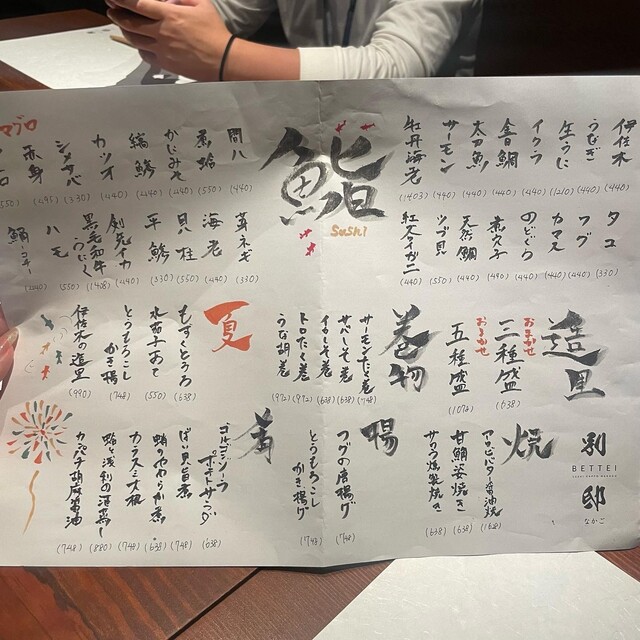 鮨
Sushi
伊佐木 (440)
うなぎ (440)
生うに (1210)
イクラ (440)
金目鯛 (440)
太刀魚 (440)
サーモン (440)
牡丹海老 (1403)
タコ (330)
フグ (440)
カマス (440)
のどぐろ (440)
煮穴子
天然鯛 (440)
ツブ貝 (550)
紅ズワイガニ (440)
間八 (440)
煮蛤 (550)
かにみそ (440)
縞鯵 (440)
カツオ (440)
シメサバ (330)
赤身 (495)
マグロ
芽ネギ (330)
海老 (440)
貝柱 (550)
平鯵 (330)
剣先イカ (440)
黒毛和牛
うにく (1408)
ハモ (550)
造里
おまかせ
三種盛 (638)
おまかせ
五種盛 (1078)
巻物
サーモンたく巻 (748)
サバしそ巻 (638)
イカしそ巻 (638)
トロたく巻 (972)
うな胡巻 (972)
夏
もずくとろろ (638)
水茄子あて (550)
とうもろこし
かき揚 (748)
伊佐木の造里 (990)
別邸
BETTEI
なかご
焼
甘鯛姿焼き (638)
サワラ燻製焼き (638)
揚
フグの唐揚げ (748)
とうもろこし
かき揚げ (748)
肴
ゴルゴンゾーラ
ポテトサラダ (638)
ばい貝旨煮 (748)
蛸のやわらか煮 (638)
カラスミ大根 (748)
蛤と浅利の酒蒸し (880)
カンパチ胡麻醤油 (748)